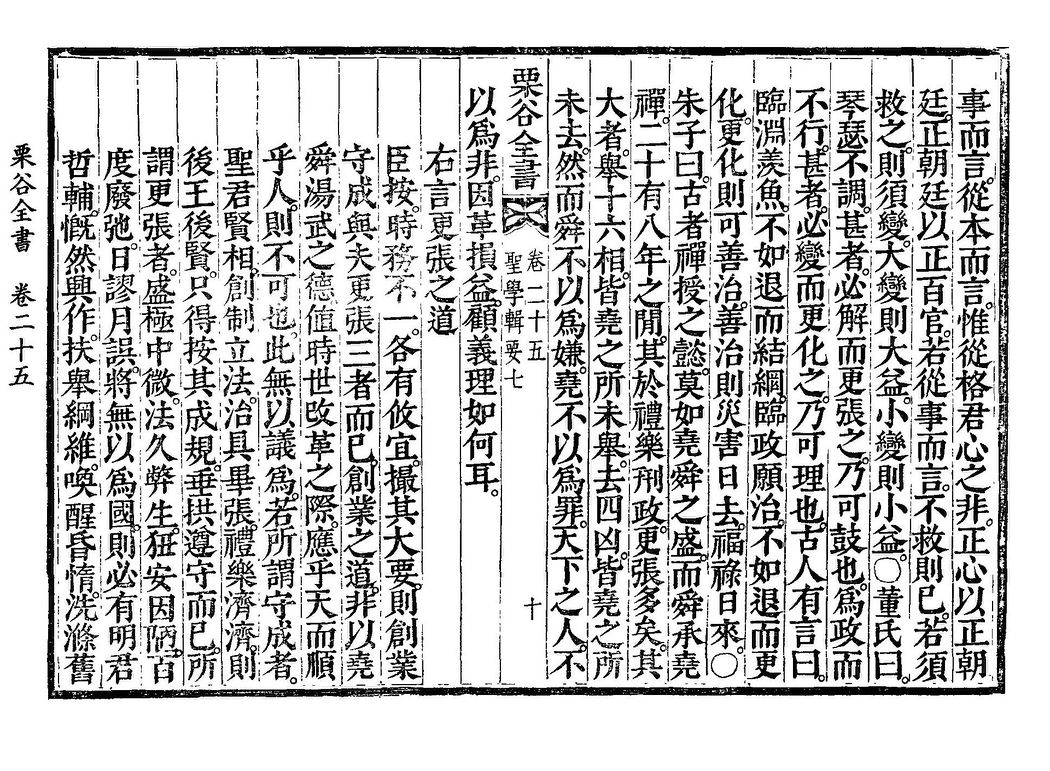 事而言。從本而言。惟從格君心之非。正心以正朝
廷。正朝廷以正百官。若從事而言。不救則已。若須
救之。則須變。大變則大益。小變則小益。〇董氏曰。
琴瑟不調。甚者。必解而更張之。乃可鼓也。爲政而
不行。甚者。必變而更化之。乃可理也。古人有言曰。
臨淵羨魚。不如退而結網。臨政願治。不如退而更
化。更化則可善治。善治則災害日去。福祿日來。〇
朱子曰。古者禪授之懿。莫如堯舜之盛。而舜承堯
禪。二十有八年之閒。其於禮樂刑政。更張多矣。其
大者。舉十六相。皆堯之所未舉。去四凶。皆堯之所
未去。然而舜不以爲嫌。堯不以爲罪。天下之人。不
栗谷全書 卷二十五 聖學輯要七 十
以爲非。因革損益。顧義理如何耳。
右言更張之道
臣按。時務不一。各有攸宜。撮其大要。則創業
守成與夫更張三者而已。創業之道。非以堯
舜湯武之德。値時世改革之際。應乎天而順
乎人。則不可也。此無以議爲。若所謂守成者。
聖君賢相。創制立法。治具畢張。禮樂濟濟。則
後王後賢。只得按其成規。垂拱遵守而已。所
謂更張者。盛極中微。法久弊生。狃安因陋。百
度廢弛。日謬月誤。將無以爲國。則必有明君
哲輔。慨然興作。扶舉綱維。喚醒昏惰。洗滌舊
栗谷全書 卷二十五